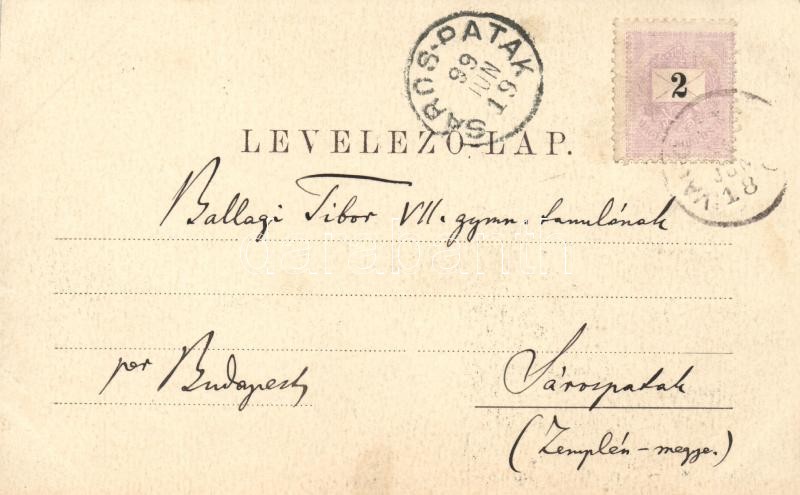 SÁROS-PATAK
99
JUN
19
2
LEVELEZŐ-LAP.
18
Ballagi Tibor VII. gymn. tanulónak
per Budapest
Sárospatak
(Zemplén-megye.)